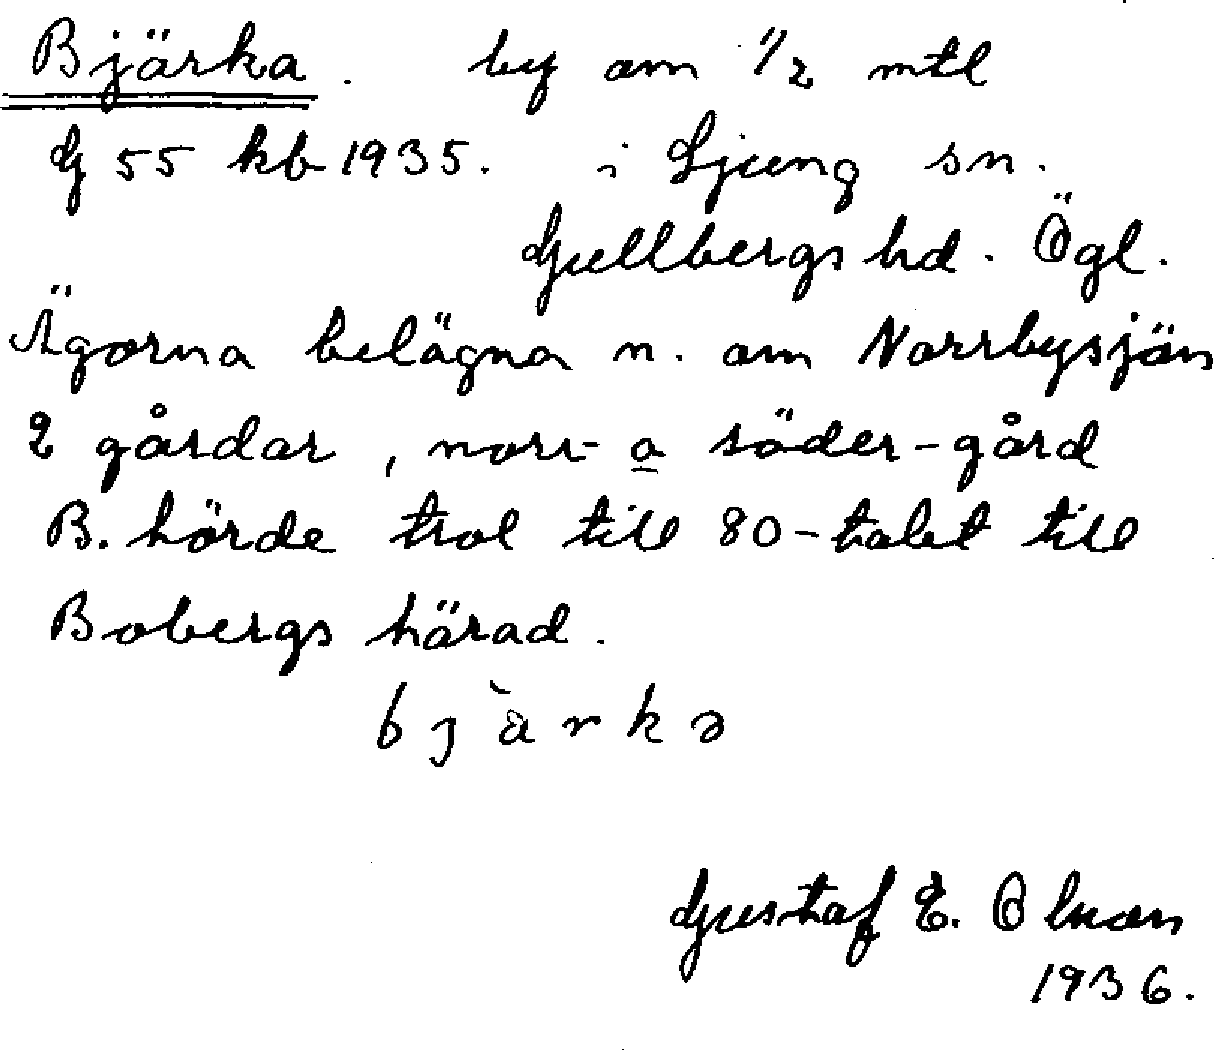 Bjärka. by om 1/2 mtl
G 55 kb 1935. i Ljung sn.
Gullbergs hd. Ögl.
Ägorna belägna n. om Norrbysjön
2 gårdar, norr- o söder-gård
B. hörde trol till 80-talet till
Bobergs härad.
b j à r k ə
Gustaf E.
1936.